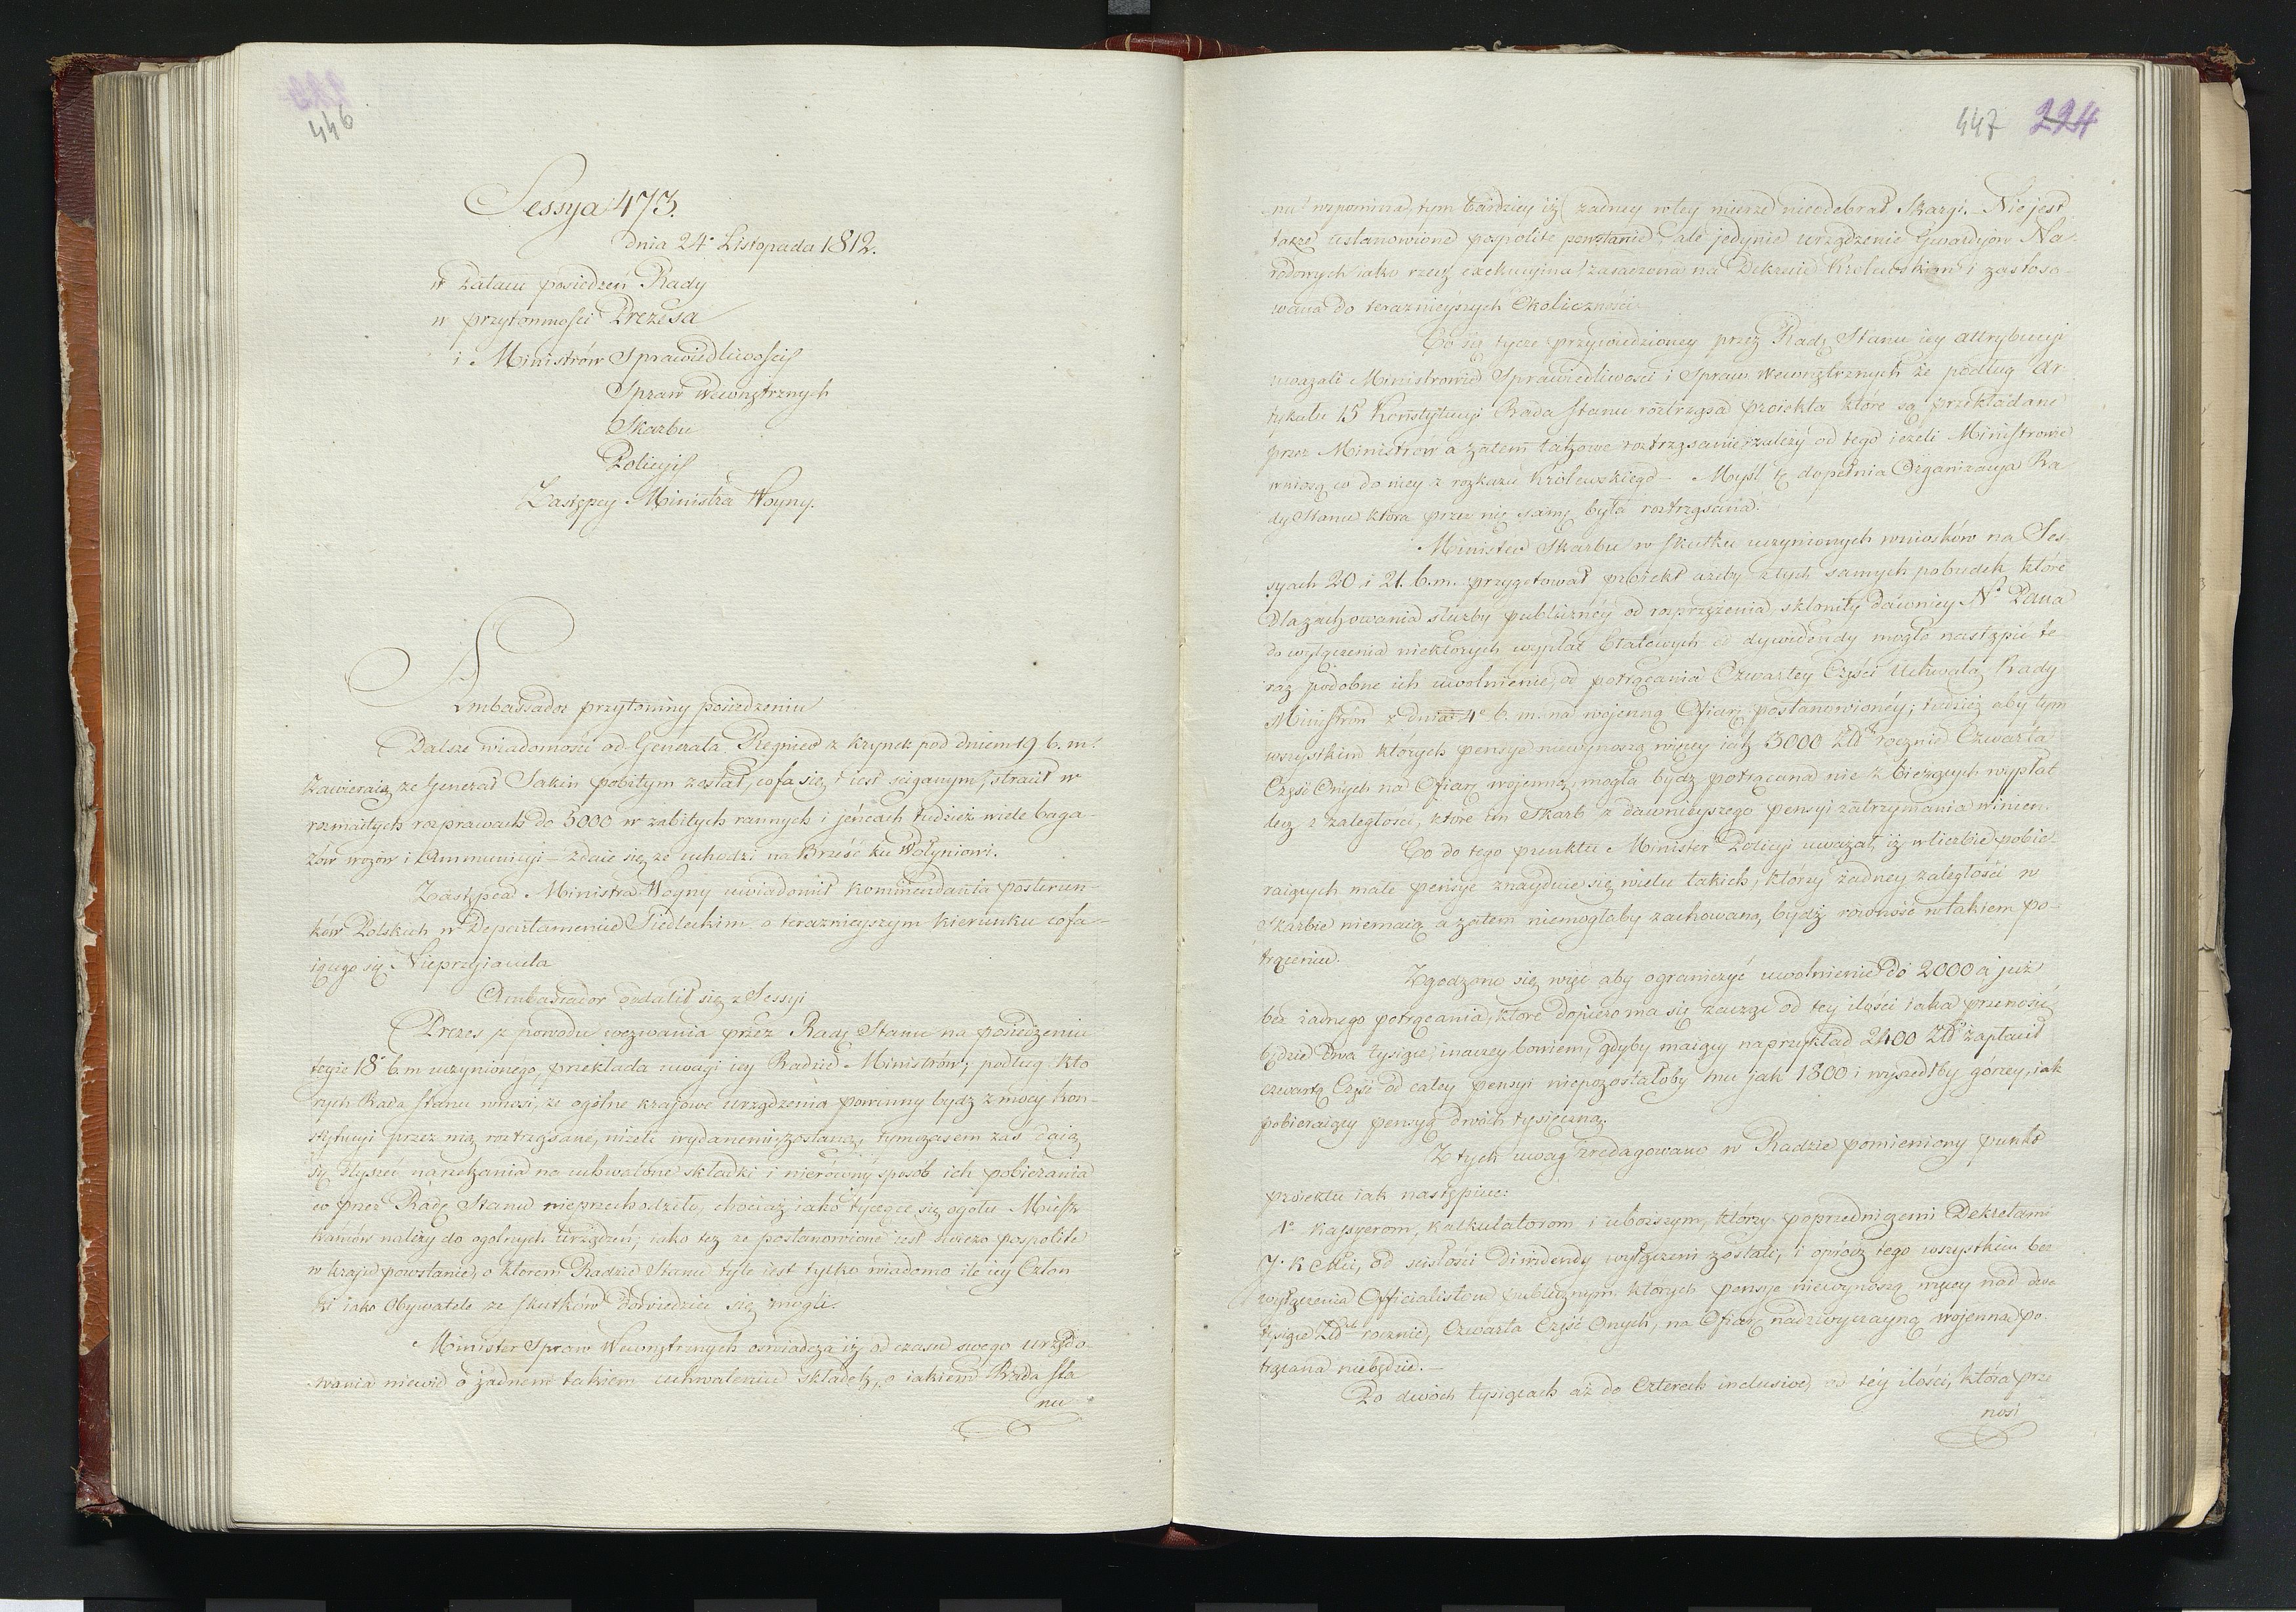 446
Sessya 473.
dnia 24° Listopada 1812.
w Pałacu posiedzeń Rady
w przytomności Prezesa
i Ministrów Sprawiedliwości
Spraw Wewnętrznych
Skarbu
Policyi
Zastępcy Ministra Woyny.
Ambassador przytomny posiedzeniu
Dalsze wiadomości od Generała Regnier z Krynek pod dniem 19 b. m.
zawieraią, ze Generał Sakin pobitym został, cofa się, i iest sciganym, stracił w
rozmaitych rozprawach do 5000 w zabitych rannych i jeńcach tudzież wiele baga-
zów wozów i Ammunicyi – zdaie się, ze uchodzi na Brześć ku Wołyniowi.
Zastępca Ministra Woyny uwiadomił Kommendanta posterun-
ków Polskich w Departamencie Siedleckim o teraznieyszym kierunku cofa-
iącego się Nieprzyiaciela
Ambassador oddalił się z Sessyi
Prezes z powodu wezwania przez Radę Stanu na posiedzeniu
teyże 18° b. m uczynionego, przekłada uwagi iey Radzie Ministrów, podług któ
rych Rada Stanu wnosi, ze ogólne krajowe urządzenia powinny bydź z mocy Kon-
stytucyi przez nią roztrząsane, niżeli wydanemi zostaną, tymczasem zaś daią
się słyszeć narzekania na uchwalone składki i nierówny sposób ich pobierania
co przez Radę Stanu nieprzechodziło, chociaż iako tyczące się ogółu Miesz
kańców należy do ogolnych urządzeń; iako tez ze postanowione iest swiezo pospolite
w kraju powstanie, o ktorem Radzie Stanu tyle iest tylko wiadomo ile iey Człon
ki iako Obywatele ze skutków dowiedziec się mogli.
Minister Spraw Wewnętrznych oswiadcza iż od czasu swego urzędo-
wania niewie o żadnem takiem uchwaleniu składek, o iakiem Rada Sta
nu
447 224
nu wspomina, tym bardziey iż żadney w tey mierze nieodebrał Skargi. – Nie jest
takze ustanowione pospolite powstanie, ale jedynie urządzenie Gwardyów Na-
rodowych iako rzecz exekucyina zasadzona na Dekrecie Krolewskim i zastoso-
wana do teraznieyszych Okoliczności.
Co się tycze przywiedzioney przez Radę Stanu iey attrybucyi
uwazali Ministrowie Sprawiedliwości i Spraw Wewnętrznych że podług Ar-
tykułu 15 Konstytucyi Rada Stanu roztrząsa proiekta które są przekładane
przez Ministrów a zatem takowe roztrząsanie zależy od tego ieżeli Ministrowie
wniosą co do niey z rozkazu Królewskiego – Myśl tę dopełnia Organizacya Ra
dy Stanu która przez nię samę była roztrząsana.
Minister Skarbu w skutku uczynionych wniosków na Ses-
syach 20 i 21. b. m. przygotował proiekt azeby z tych samych pobudek które
dla zachowania służby publiczney od rozprzężenia, skłoniły dawniey N° Pana
do wyłączenia niektórych wypłat Etatowych od dywidendy mogło nastąpić te-
raz podobne ich uwolnienie, od potrącania Czwartey Części Uchwałą Rady
Ministrów z dnia 4° b. m. na wojenną Ofiarę postanowionéy; tudzież aby tym
wszystkim których pensye niewynoszą więcey iak 3000 Złł rocznie Czwarta
Część Onych na Ofiarę wojenną, mogła bydź potrącana nie z bieżących wypłat
lecz z zaległości, które im Skarb z dawnieyszego pensyi zatrzymania winien.
Co do tego punktu Minister Policyi uważał, iż w liczbie pobie-
raiących małe pensye znayduie się, wielu takich, którzy żadney zaległości w
Skarbie niemaią a zatem niemogłaby zachowaną bydź rowność w takiem po-
trąceniu.
Zgodzono się więc aby ograniczyć uwolnienie do 2000 a już
bez żadnego potrącania, które dopiero ma się zacząć od tey ilości iaka przenosić
będzie dwa tysiące, inaczey bowiem, gdyby maiący naprzykład 2400 Złł zapłacił
czwartą Część od całey pensyi niepozostałoby mu jak 1800 i wyszedłby górzey, iak
pobieraiący pensyą dwóch tysięczną.
Z tych uwag zredagowano w Radzie pomieniony punkt
proiektu iak następuie:
1° Kassyerom, kalkulatorom i uboższym, którzy poprzedniczemi Dekretami
J. K Mci, od scisłości dividendy wyłączeni zostali, i oprócz tego wszystkim bez
wyłączenia Officialistom publicznym, których pensye niewynoszą więcey nad dwa
tysiące Złł rocznie, Czwarta Część Onych, na Ofiarę nadzwyczayną wojenną po-
trącana niebędzie. –
Po dwóch tysiącach aż do Czterech inclusive, od téy ilości, która prze
nosi